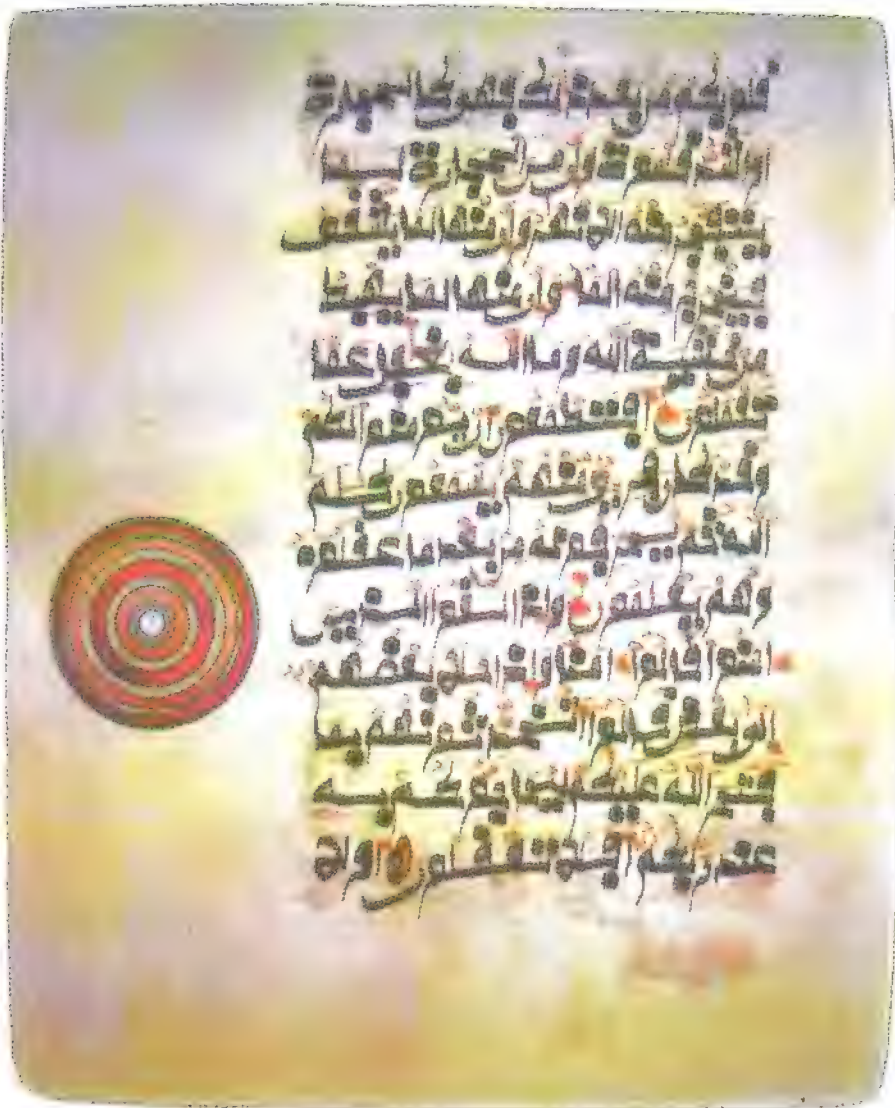 قلوبكم من بعد ذلك فهي كالحجارة
او اشد قسوة وان من الحجارة لما
يتفجر منه الانهر وان منها لما يشقق
فيخرج منه الماء وان منها لما يهبط
من خشية الله وما الله بغفل عما
تعملون افتطمعون ان يومنوا لكم
وقد كان فريق منهم يسمعون كلم
الله ثم يحرفونه من بعد ما عقلوه
وهم يعلمون واذا لقوا الذين
امنوا قالوا امنا واذا خلا بعضهم
الى بعض قالوا اتحدثونهم بما
فتح الله عليكم ليحاجوكم به
عند ربكم افلا تعقلون اولا